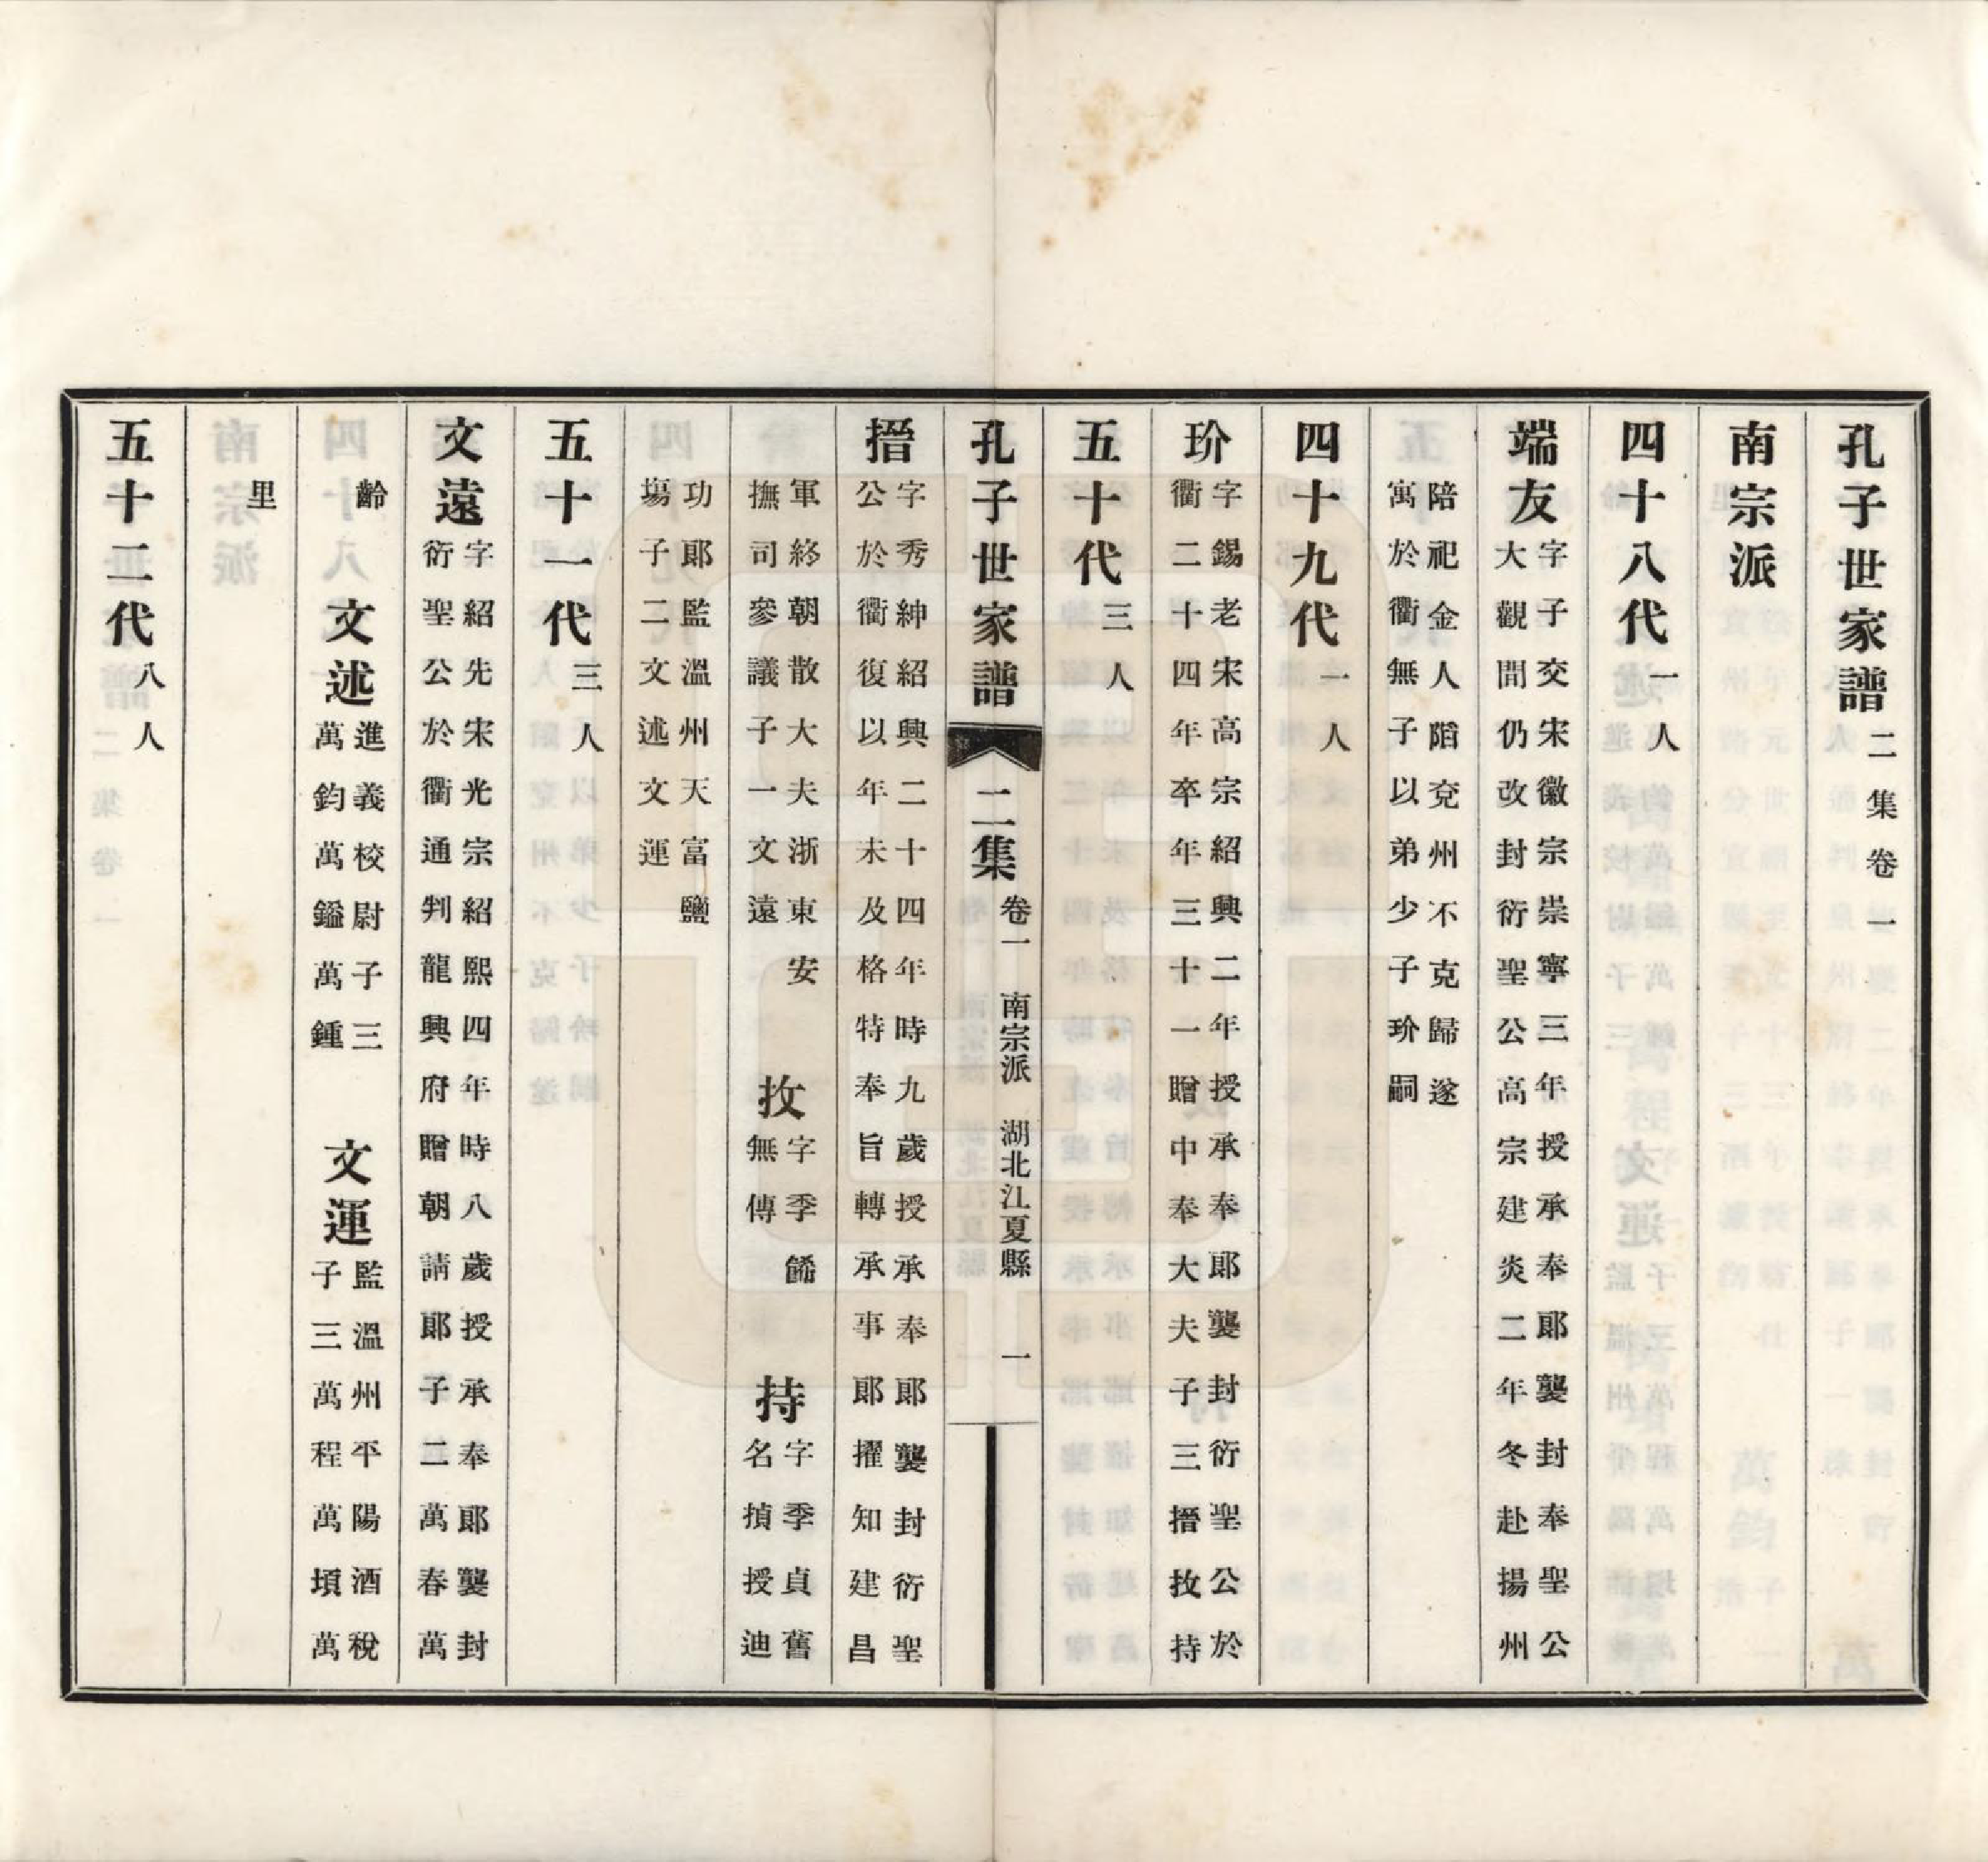 孔子世家譜二集卷一
南宗派
四十八代一人
端友字子交宋徽宗崇寧三年授承奉郎襲封奉聖公
大觀間仍改封衍聖公高宗建炎二年冬赴揚州
陪祀金人陷兗州不克歸遂
寓於衢無子以弟少子玠嗣
四十九代一人
玠字錫老宋高宗紹興二年授承奉郎襲封衍聖公於
衢二十四年卒年三十一贈中奉大夫子三搢抆持
五十代三人
孔子世家譜 二集 卷一 南宗派 湖北江夏縣 一
搢字秀紳紹興二十四年時九歲授承奉郎襲封衍聖
公於衢復以年未及格特奉旨轉承事郎擢知建昌
軍終朝散大夫浙東安
撫司參議子一文遠
抆字季餙
無傳
持字季貞舊
名損授迪
功郎監溫州天富鹽
塲子二文述文運
五十一代三人
文遠字紹先宋光宗紹熙四年時八歲授承奉郎襲封
衍聖公於衢通判龍興府贈朝請郎子二萬春萬
齡
文述進義校尉子三
萬鈞萬鎰萬鍾
文運監溫州平陽酒稅
子三萬程萬頃萬
里
五十二代八人